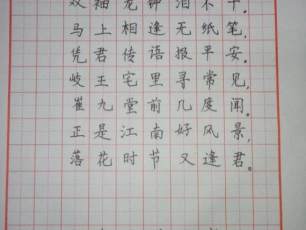 双袖龙钟泪不干。
马上相逢无纸笔,
凭君传语报平安。
岐王宅里寻常见,
崔九堂前几度闻。
正是江南好风景,
落花时节又逢君。